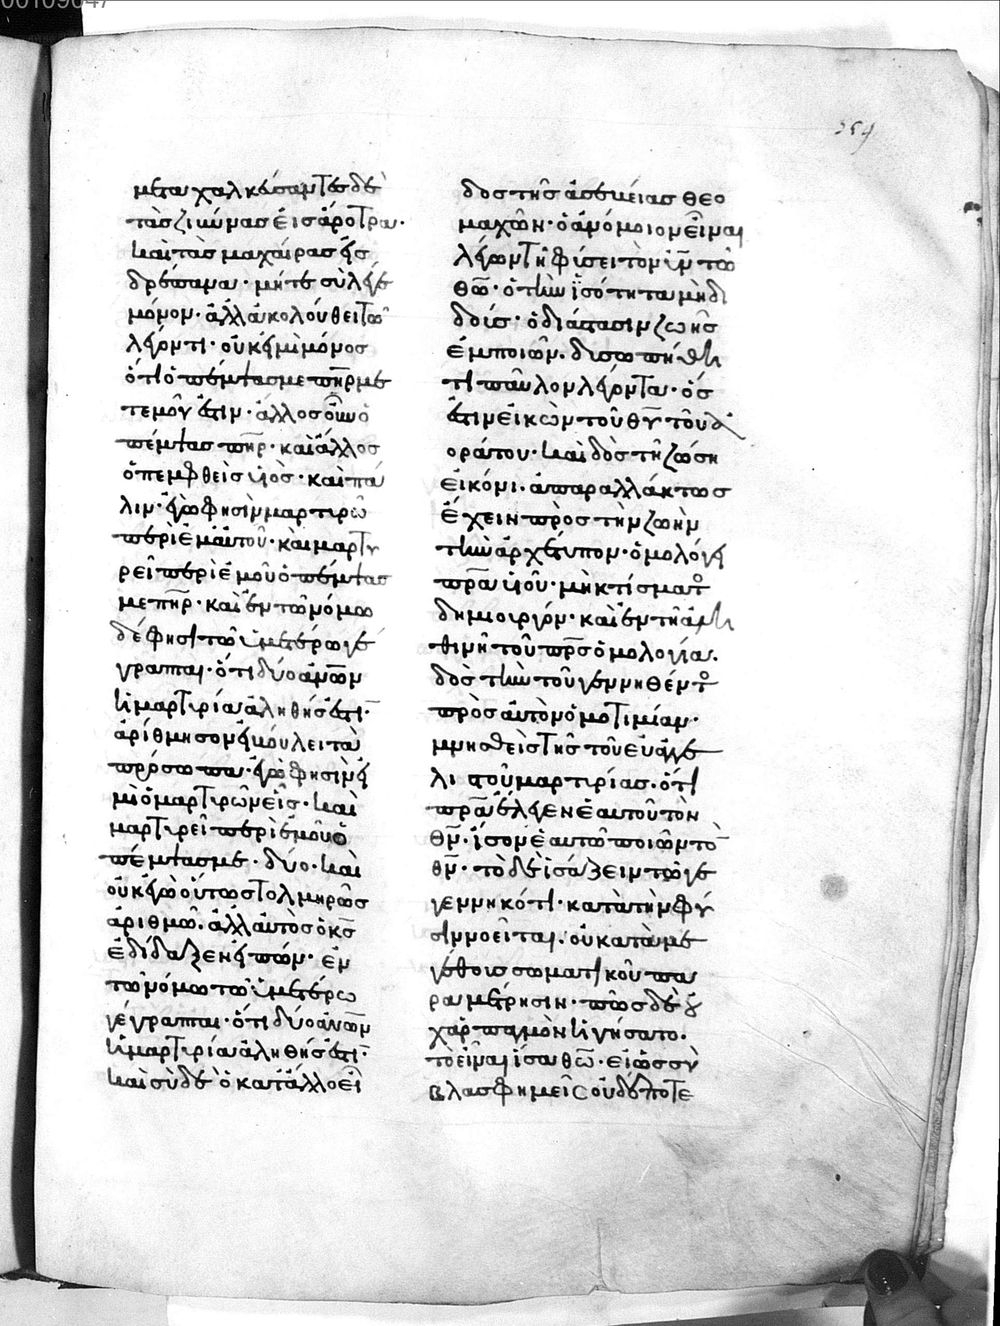 00109047
354
μεταχαλκεύσαντες δὲ
τὰς ζιβύνας εἰς ἄροτρα·
καὶ τὰς μαχαίρας εἰς
δρέπανα· μήτε σὺ λέγε
μόνον· ἀλλ' ἀκολούθει τῶ
λέγοντι· οὐκ εἰμὶ μόνος
ὅτι ὁ πέμψας με πηρ με
τ' ἐμοῦ ἐστιν· ἄλλος οὖν ὁ
πέμψας πηρ· καὶ ἄλλος
ὁ πεμφθεὶς υἱός· καὶ πά
λιν· ἐγώ φησιν μαρτυρῶ
περὶ ἐμαυτοῦ· καὶ μαρτυ
ρεῖ περὶ ἐμοῦ ὁ πέμψας
με πηρ· καὶ ἐν τῶ νόμω
δέ φησι τῶ ὑμετέρω γέ
γραπται· ὅτι δύο ἀνων
ἡ μαρτυρία ἀληθής ἐστι·
ἀρίθμησον εἰ βούλει τὰ
πρόσωπα· ἐγώ φησιν εἰ
μὶ ὁ μαρτυρῶν εἷς· καὶ
μαρτυρεῖ περὶ ἐμοῦ ὁ
πέμψας με· δύο· καὶ
οὐκ ἐγὼ οὕτως τολμηρῶς
ἀριθμῶ· ἀλλ' αὐτὸς ὁ κς
ἐδίδαξεν εἰπών· ἐν
τῶ νόμω τῶ ὑμετέρω
γέγραπται· ὅτι δύο ἀνων
ἡ μαρτυρία ἀληθής ἐστι·
καὶ σὺ δὲ ὁ κατάλλος εἶ
δος τῆς ἀσεβείας θεο
μαχῶν· ὁ ἀνόμοιον εἶναι
λέγων τῆ φύσει τὸν υν τῶ
θω· ὁ τὴν ἰσότητα μὴ δι
δούς· ὁ διάστασιν ζωῆς
ἐμποιῶν· δυσωπήθη
τι παῦλον λέγοντα· ὅς
ἐστιν εἰκὼν τοῦ θυ τοῦ ἀ
οράτου· καὶ δὸς τῆ ζώση
εἰκόνι· ἀπαραλλάκτως
ἔχειν πρὸς τὴν ζωὴν
τὴν ἀρχέτυπον· ὁμολόγει
πρα υἱοῦ· μὴ κτίσματος
δημιουργόν· καὶ ἐν τῆ ἀλη
θινῆ τοῦ πρς ὁμολογία·
δὸς τὴν τοῦ γεννηθέντος
πρὸς αὐτὸν ὁμοτιμίαν·
μνησθεὶς τῆς τοῦ εὐαγγε
λιστοῦ μαρτυρίας· ὅτι
πρα ἔλεγεν ἑαυτοῦ τὸν
θν· ἴσον ἑαυτῶ ποιῶν τὸ
θν· τὸ δὲ ἰσάζειν τῶ γε
γεννηκότι· κατὰ τὴν φύ
σιν νοεῖται· οὐ κατὰ με
γέθους σωματικοῦ πα
ραμέτρησιν· πῶς δὲ οὐ
χ ἁρπαγμὸν ἡγήσατο·
τὸ εἶναι ἴσα θω· εἰ ὡς σὺ
βλασφημεῖς οὐδέποτε